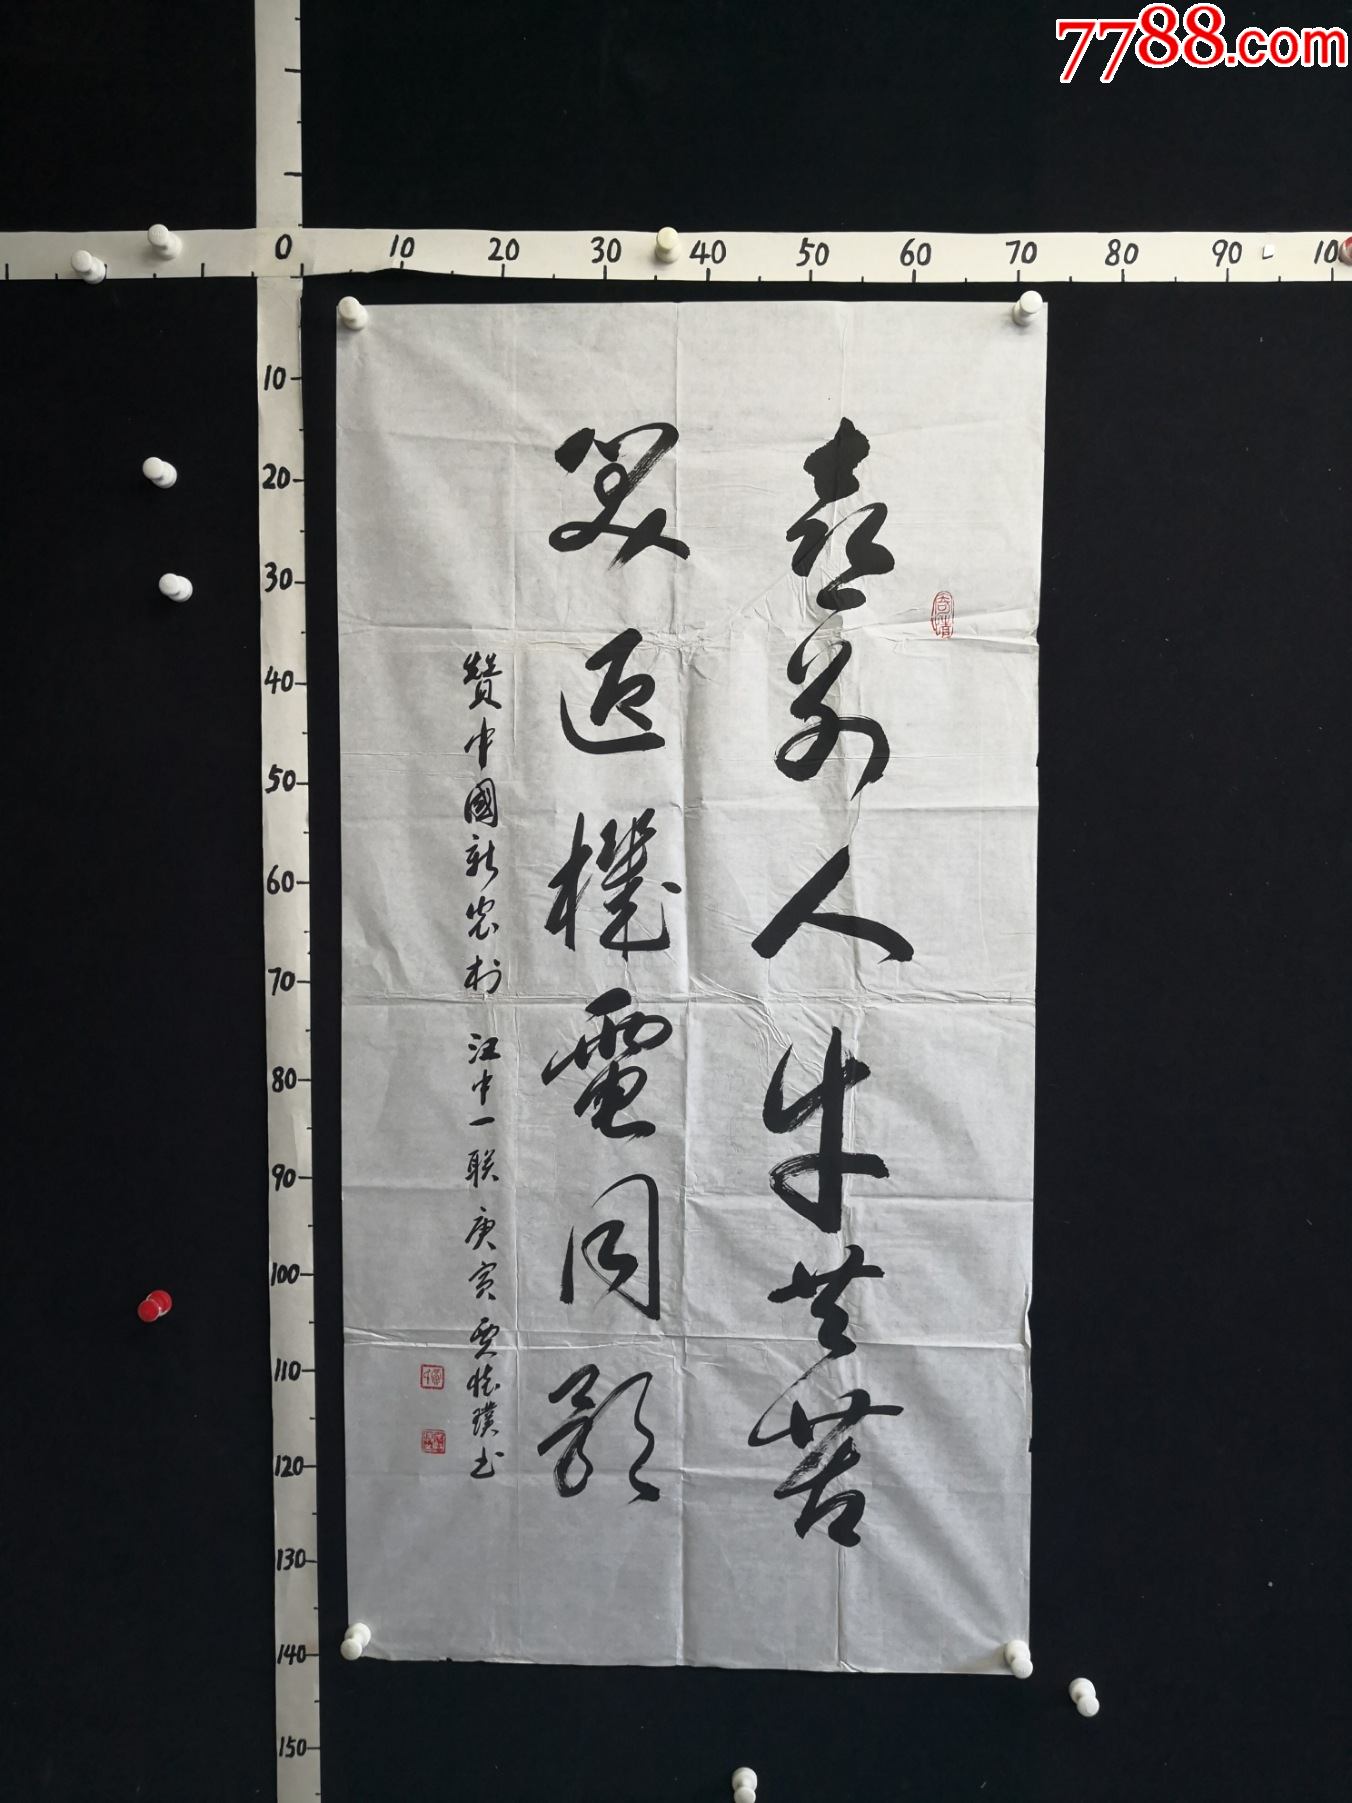 7788.com
0 10 20 30 40 50 60 70 80 90
10
20
30
40
50
60
70
80
90
100
110
120
130
140
150
喜别人牛共苦
笑迎機電同歌
赞中國新农村 汪中一联 庚寅 贾怀璞书